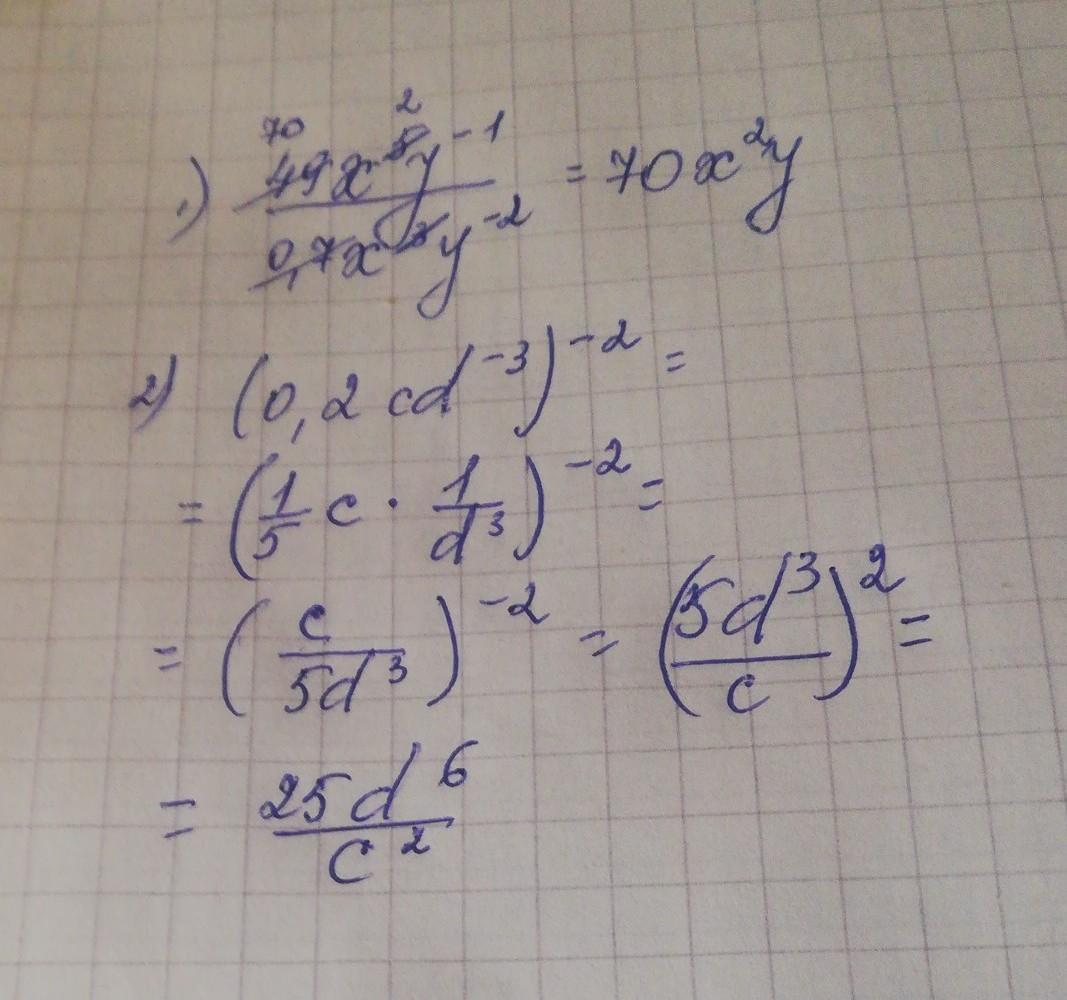 70 2
1) 49x⁵y⁻¹ / 0,7x³y⁻² = 70x²y
2) (0,2 cd⁻³)⁻² =
= (1/5 c · 1/d³)⁻² =
= (c / 5d³)⁻² = (5d³ / c)² =
= 25d⁶ / c²